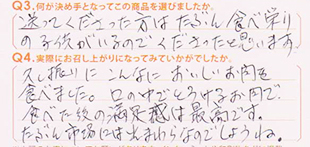 Q3.何が決め手となってこの商品を選びましたか。
送ってくださった方はたぶん食べ栄り
の子供がいるのでくださったと思います
Q4.実際にお召し上がりになってみていかがでしたか。
久し振りにこんなにおいしいお肉を
食べました。口の中でとろけるお肉で
食べた後の満足感は最高です。
たぶん市場には出まわらなのでしょうね。